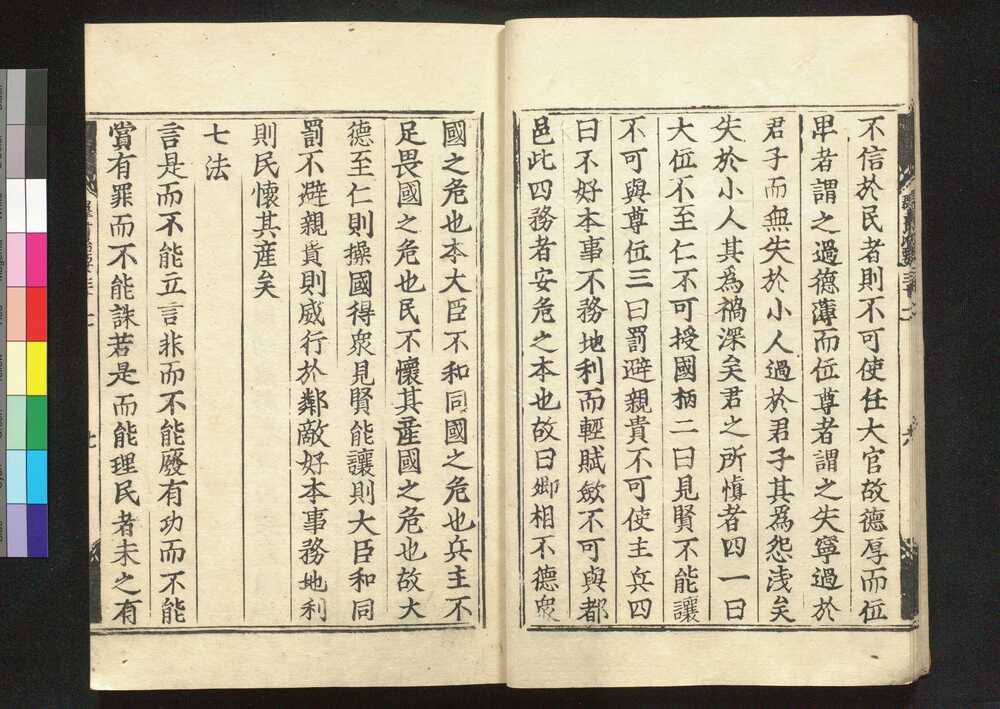 不信於民者則不可使任大官故德厚而位
卑者謂之過德薄而位尊者謂之失寧過於
君子而無失於小人過於君子其爲怨浅矣
失於小人其爲禍深矣君之所愼者四一曰
大位不至仁不可授國柄二曰見賢不能讓
不可與尊位三曰罰避親貴不可使主兵四
曰不好本事不務地利而輕賦斂不可與都
邑此四務者安危之本也故曰卿相不德衆
國之危也本大臣不和同國之危也兵主不
足畏國之危也民不懷其產國之危也故大
德至仁則操國得衆見賢能讓則大臣和同
罰不避親貴則威行於鄰敵好本事務地利
則民懷其産矣
七法
言是而不能立言非而不能廢有功而不能
賞有罪而不能誅若是而能理民者未之有